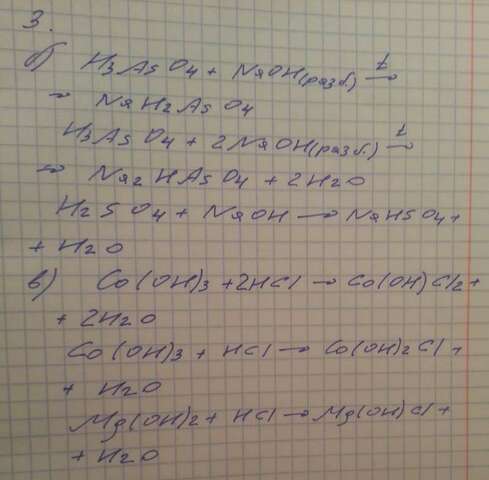 3.
б) H3AsO4 + NaOH(разб.) t→
→ NaH2AsO4
H3AsO4 + 2NaOH(разб.) t→
→ Na2HAsO4 + 2H2O
H2SO4 + NaOH → NaHSO4 +
+ H2O
в) Co(OH)3 + 2HCl → Co(OH)Cl2 +
+ 2H2O
Co(OH)3 + HCl → Co(OH)2Cl +
+ H2O
Mg(OH)2 + HCl → Mg(OH)Cl +
+ H2O